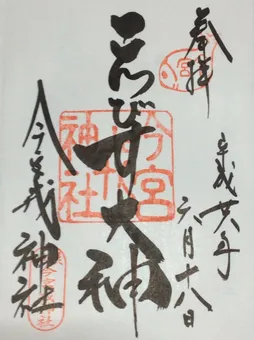 奉拝
平成廿八年
六月十八日
ゑびす大神
今宮戎神社
今宮
神社